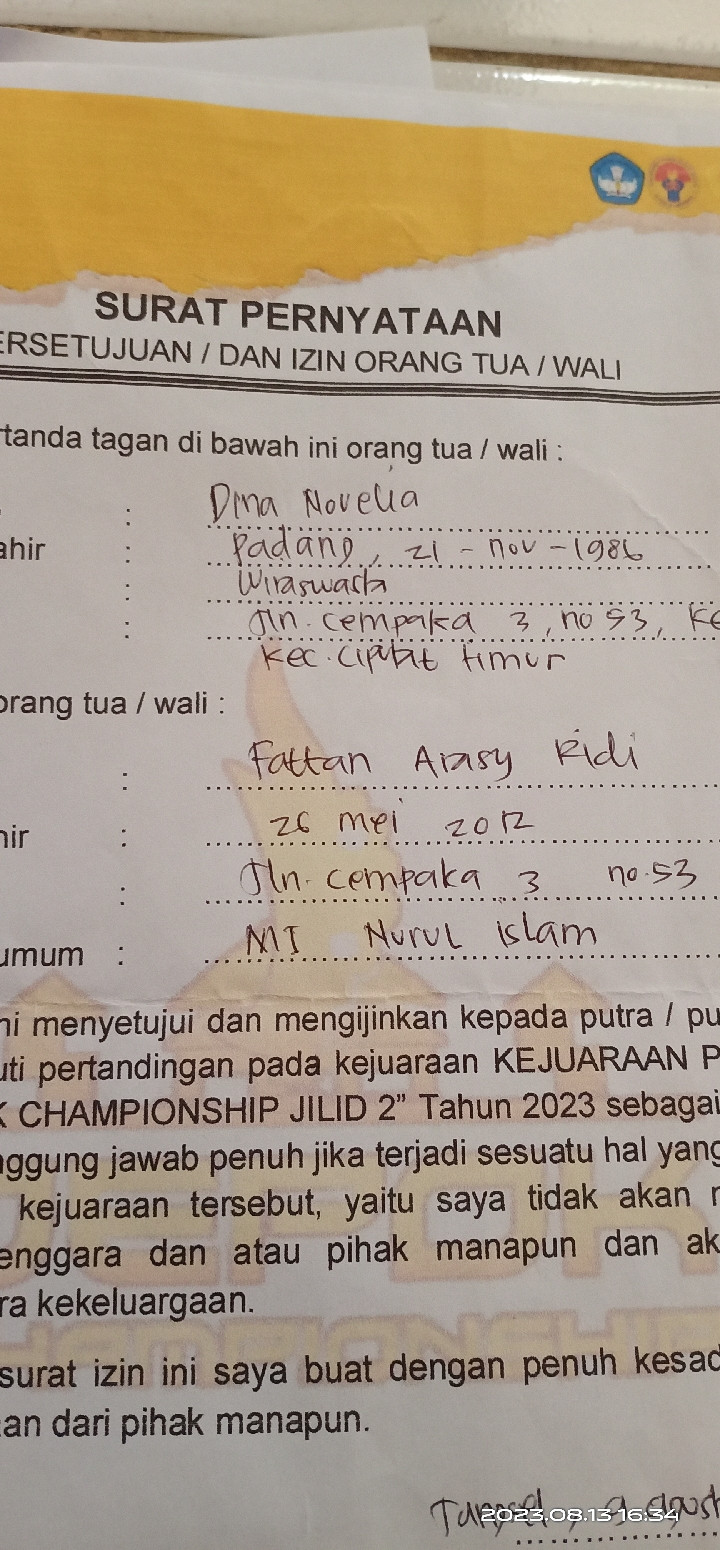 SURAT PERNYATAAN
ERSETUJUAN / DAN IZIN ORANG TUA / WALI
tanda tagan di bawah ini orang tua / wali :
: Dina Novelia
ahir : Padang, 21 - nov - 1986
: Wiraswasta
: Jln. cempaka 3, no 53, Ke
kec. Ciputat timur
orang tua / wali :
: Fattan Arasy Ridi
hir : 26 mei 2012
: Jln. cempaka 3 no. 53
umum : MI Nurul islam
ni menyetujui dan mengijinkan kepada putra / pu
uti pertandingan pada kejuaraan KEJUARAAN P
K CHAMPIONSHIP JILID 2” Tahun 2023 sebagai
nggung jawab penuh jika terjadi sesuatu hal yang
kejuaraan tersebut, yaitu saya tidak akan
enggara dan atau pihak manapun dan ak
ra kekeluargaan.
surat izin ini saya buat dengan penuh kesad
an dari pihak manapun.
Tangsel, 9 agust
2023.08.13 16:34